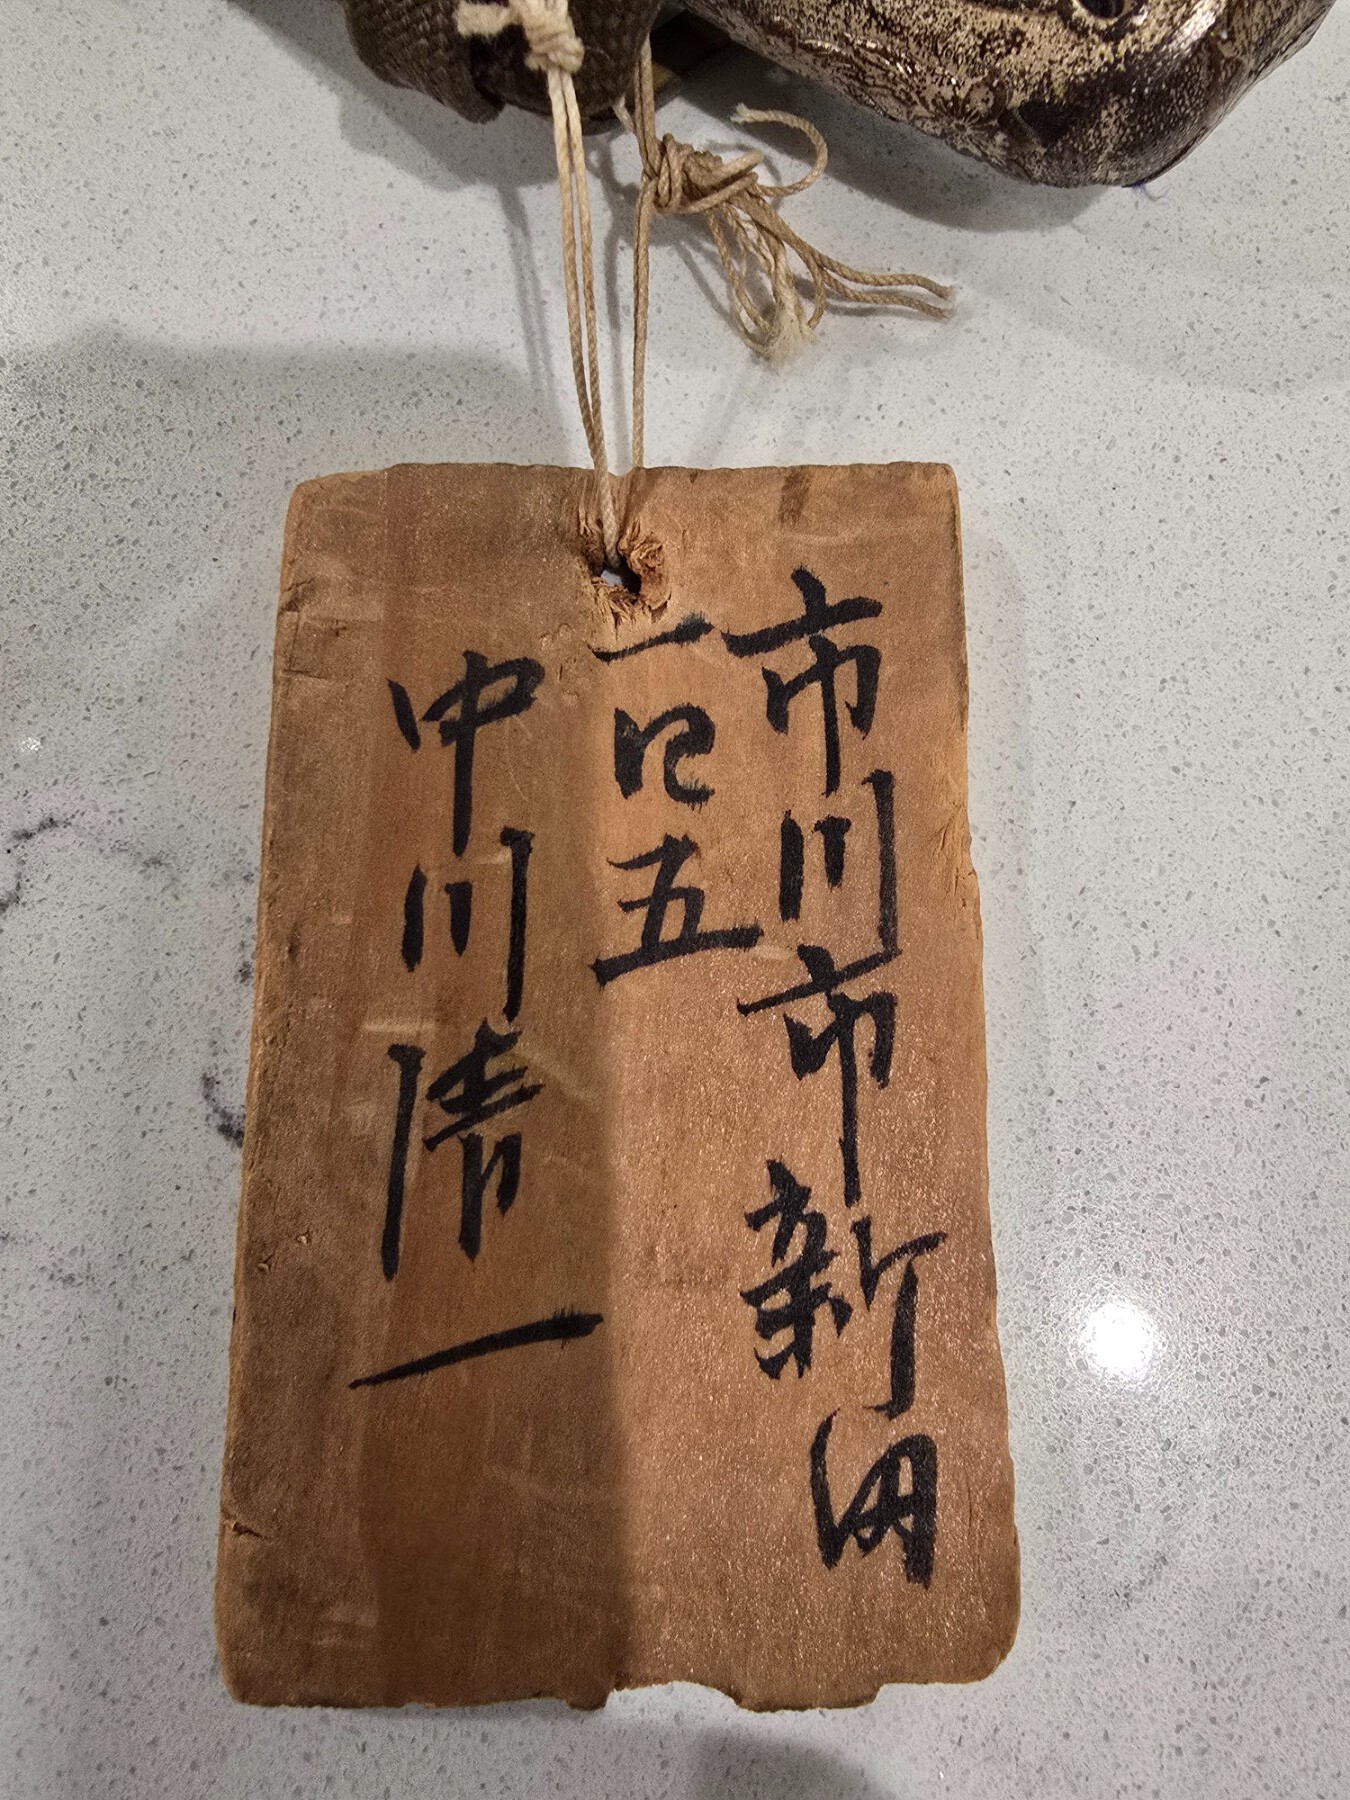 市川市新田
一四五
中川清一